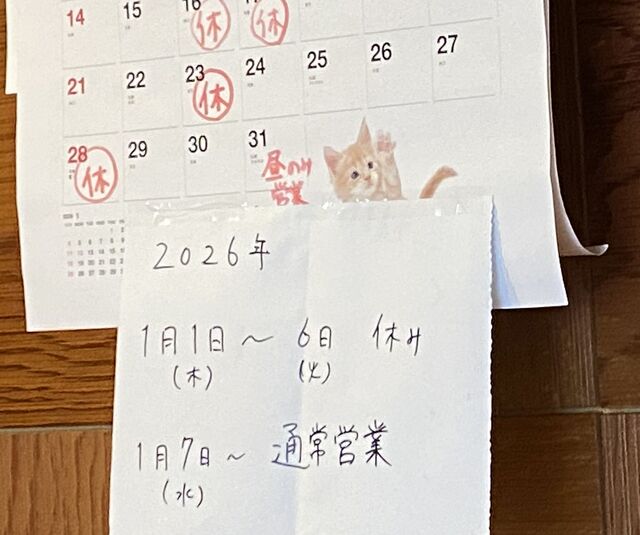 14 15 16 17
休 休
21 22 23 24 25 26 27
休
28 29 30 31
休 昼のみ
営業
2026年
1月1日～6日 休み
(木) (火)
1月7日～通常営業
(水)